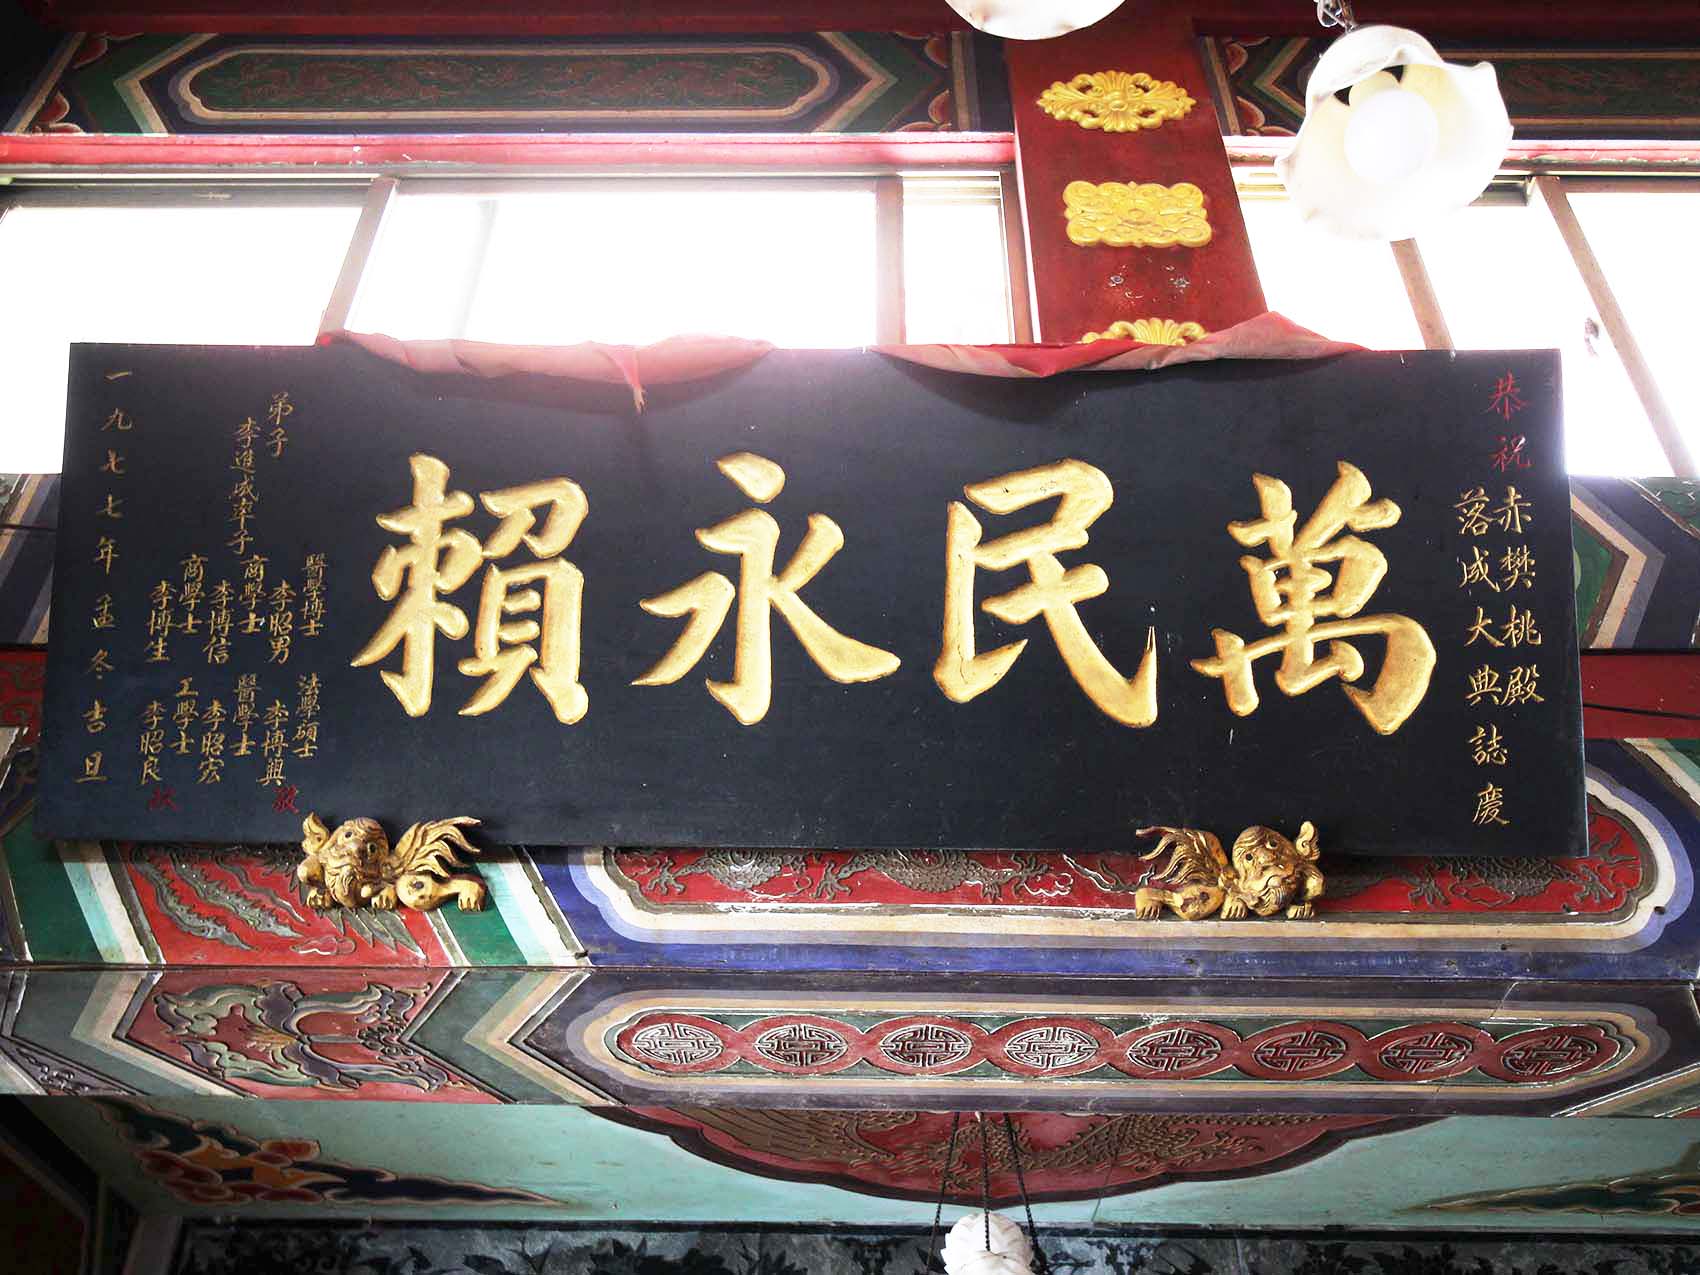 恭祝
赤樊桃殿
落成大典誌慶
萬民永賴
弟子
李進成率子
醫學博士 法學碩士
李昭男 李博興
商學士 醫學士
李博信 李昭宏
商學士 工學士
李博生 李昭良
敬獻
一九七七年孟冬吉旦